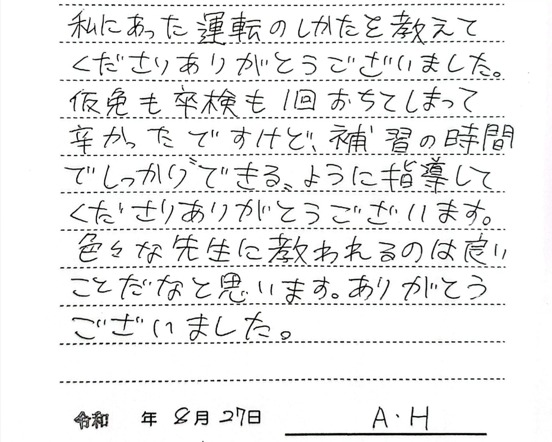 私にあった運転のしかたを教えて
くださりありがとうございました。
仮免も卒検も1回おちてしまって
辛かったですけど、補習の時間
でしっかりできるように指導して
くださりありがとうございます。
色々な先生に教われるのは良い
ことだなと思います。ありがとう
ございました。
令和 年 8月27日 A.H